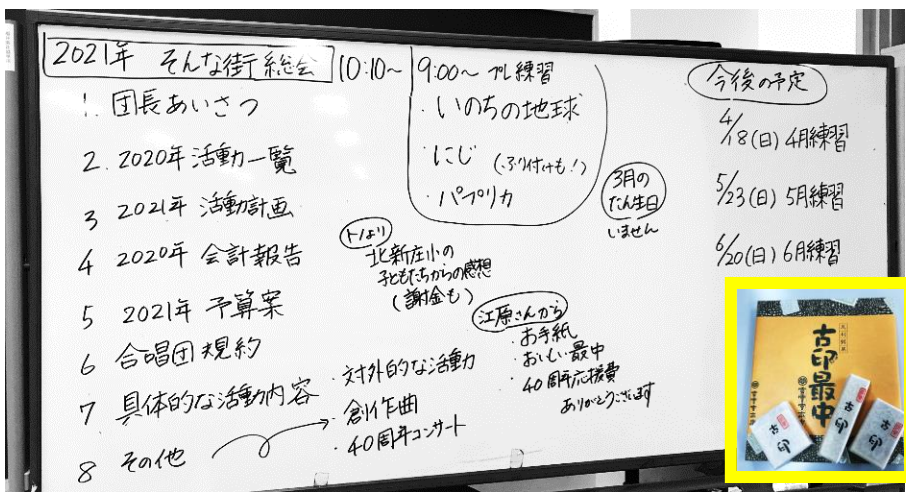 2021年 そんな街総会 10:10~
1. 団長あいさつ
2. 2020年活動一覧
3 2021年 活動計画
4 2020年 会計報告
5 2021年 予算案
6 合唱団規約
7 具体的な活動内容
8 その他
・対外的な活動
・創作曲
・40周年コンサート
9:00~ プレ練習
・いのちの地球
・にじ (ふり付けも!)
・パプリカ
3月の
たん生日
いません
トノより
北新庄小の
子どもたちからの感想
(謝金も)
江原さんから
・お手紙
・おいしい最中
・40周年応援費
ありがとうございます
今後の予定
4/18(日) 4月練習
5/23(日) 5月練習
6/20(日) 6月練習
古印最中
古印
古印
古印